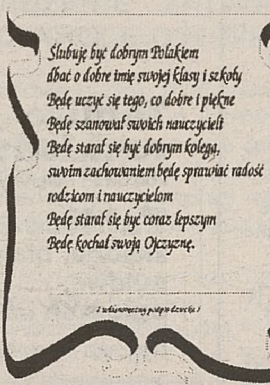 Ślubuję być dobrym Polakiem
dbać o dobre imię swojej klasy i szkoły
Będę uczyć się tego, co dobre i piękne
Będę szanował swoich nauczycieli
Będę starał się być dobrym kolegą,
swoim zachowaniem będę sprawiać radość
rodzicom i nauczycielom
Będę starał się być coraz lepszym
Będę kochał swoją Ojczyznę.
/ własnoręczny podpis dziecka /